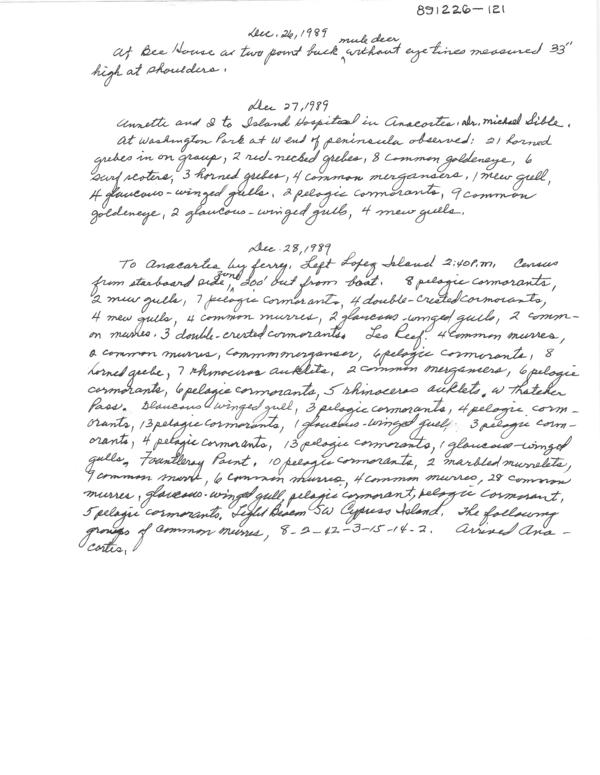 891226-121
Dec. 26, 1989
At Bee House a two point buck mule deer without eye tines measured 33"
high at shoulders.
Dec 27, 1989
Annette and I to Island Hospital in Anacortes. Dr. Michael Sible.
At Washington Park at W end of peninsula observed: 21 horned
grebes in on group, 2 red-necked grebes, 8 common goldeneye, 6
surf scoters, 3 horned grebes, 4 common mergansers, 1 mew gull,
4 glaucous-winged gulls. 2 pelagic cormorants, 9 common
goldeneye, 2 glaucous-winged gulls, 4 mew gulls.
Dec 28, 1989
To Anacortes by ferry. Left Lopez Island 2:40 P.M. Census
from starboard side, zone 200' out from boat. 8 pelagic cormorants,
2 mew gulls, 7 pelagic cormorants, 4 double-crested cormorants,
4 mew gulls, 4 common murres, 2 glaucous-winged gulls, 2 comm-
on murres. 3 double-crested cormorants. Leo Reef. 4 common murres,
2 common murres, common merganser, 6 pelagic cormorants, 8
horned grebe, 7 rhinoceros auklets, 2 common mergansers, 6 pelagic
cormorants, 6 pelagic cormorants, 5 rhinoceros auklets. W Thatcher
Pass. Glaucous-winged gull, 3 pelagic cormorants, 4 pelagic corm-
orants, 13 pelagic cormorants, 1 glaucous-winged gull, 3 pelagic corm-
orants, 4 pelagic cormorants, 13 pelagic cormorants, 1 glaucous-winged
gulls. Fauntleroy Point. 10 pelagic cormorants, 2 marbled murrelets,
9 common murre, 6 common murres, 4 common murres, 28 common
murres, glaucous-winged gull, pelagic cormorant, pelagic cormorant,
5 pelagic cormorants. Light Beacon SW Cypress Island. The following
groups of common murres, 8-2-42-3-15-14-2. Arrived Ana-
cortes.